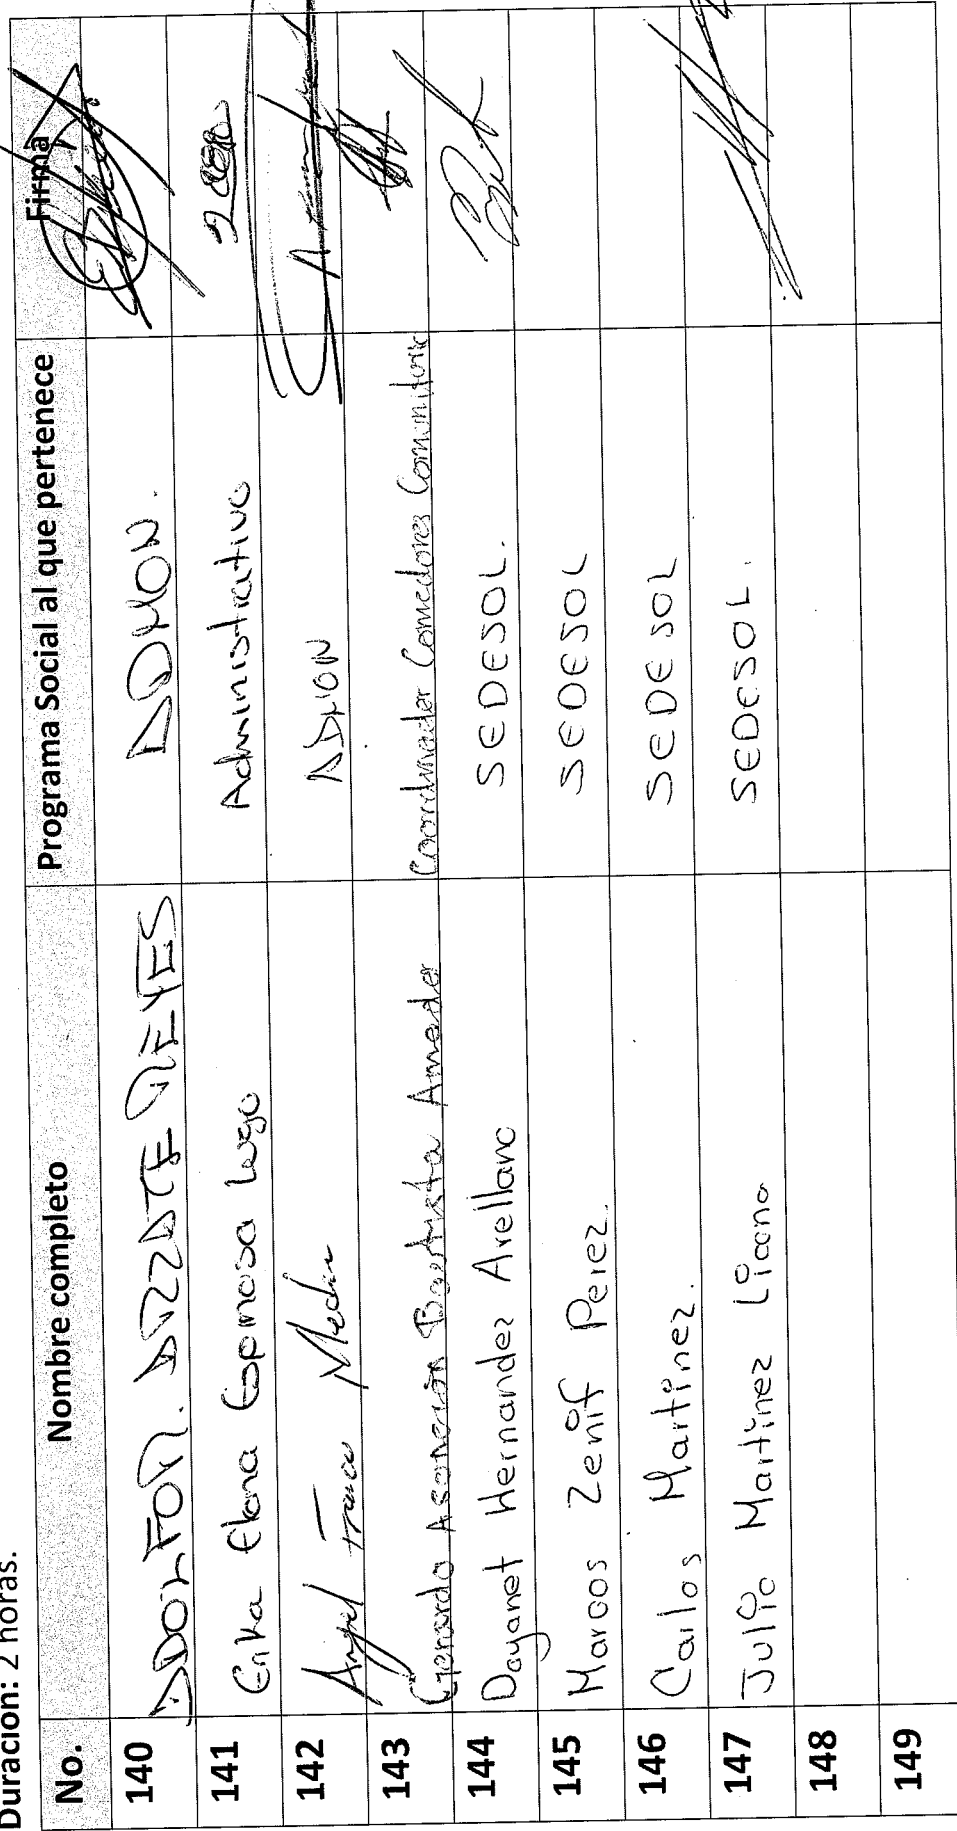 Duración: 2 horas.
No. Nombre completo Programa Social al que pertenece Firma
140 ADOLFO R. ARZATE REYES ADMON.
141 Erika Elena Espinosa Lugo Administrativo
142 Angel Franco Medin ADMON
143 Gerardo Ascención Bautista Amador Coordinador Comedores Comunitario
144 Dayanet Hernandez Arellano SEDESOL.
145 Marcos Zenif Perez. SEDESOL
146 Carlos Martinez. SEDESOL
147 Julio Martinez Licona SEDESOL.
148
149